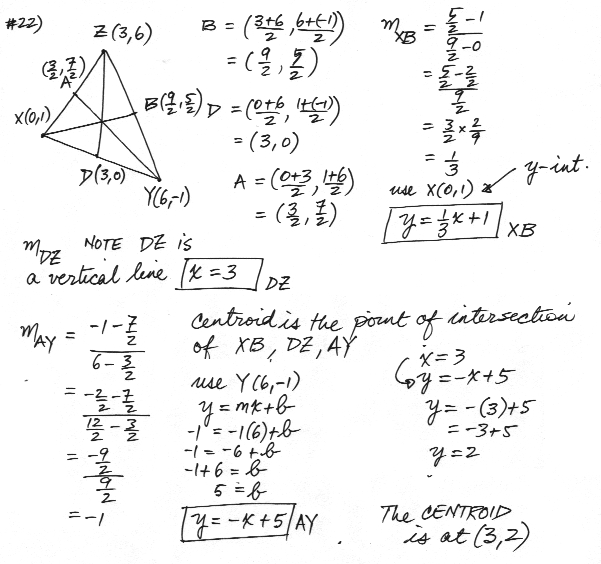 #22)
Z(3,6)
(3/2, 7/2)
A
X(0,1)
B(9/2, 5/2)
D(3,0)
Y(6,-1)
B = (3+6/2, 6+(-1)/2)
= (9/2, 5/2)
D = (0+6/2, 1+(-1)/2)
= (3,0)
A = (0+3/2, 1+6/2)
= (3/2, 7/2)
m_XB = 5/2 - 1 / 9/2 - 0
= 5/2 - 2/2 / 9/2
= 3/2 × 2/9
= 1/3
y-int.
use X(0,1)
y = 1/3 x + 1 XB
m_DZ NOTE DZ is
a vertical line x = 3 DZ
m_AY = -1 - 7/2 / 6 - 3/2
= -2/2 - 7/2 / 12/2 - 3/2
= -9/2 / 9/2
= -1
Centroid is the point of intersection
of XB, DZ, AY
use Y(6,-1)
y = mx+b
-1 = -1(6)+b
-1 = -6 + b
-1+6 = b
5 = b
y = -x + 5 AY
x = 3
y = -x+5
y = -(3)+5
= -3+5
y = 2
The CENTROID
is at (3,2)